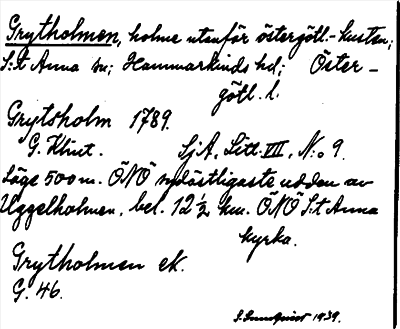 Grytholmen, holme utanför östergötl.-kusten;
S:t Anna sn; Hammarkinds hd; Öster-
götl. l.
Grytsholm 1789.
G. Klint. SjA, Litt. VII, N:o 9.
Läge 500 m. ÖNÖ sydöstligaste udden av
Uggelholmen, bel. 12 ½ km. ÖNÖ S:t Anna
kyrka.
Grytholmen eK.
G. 46.
S. Lundqvist 1939.